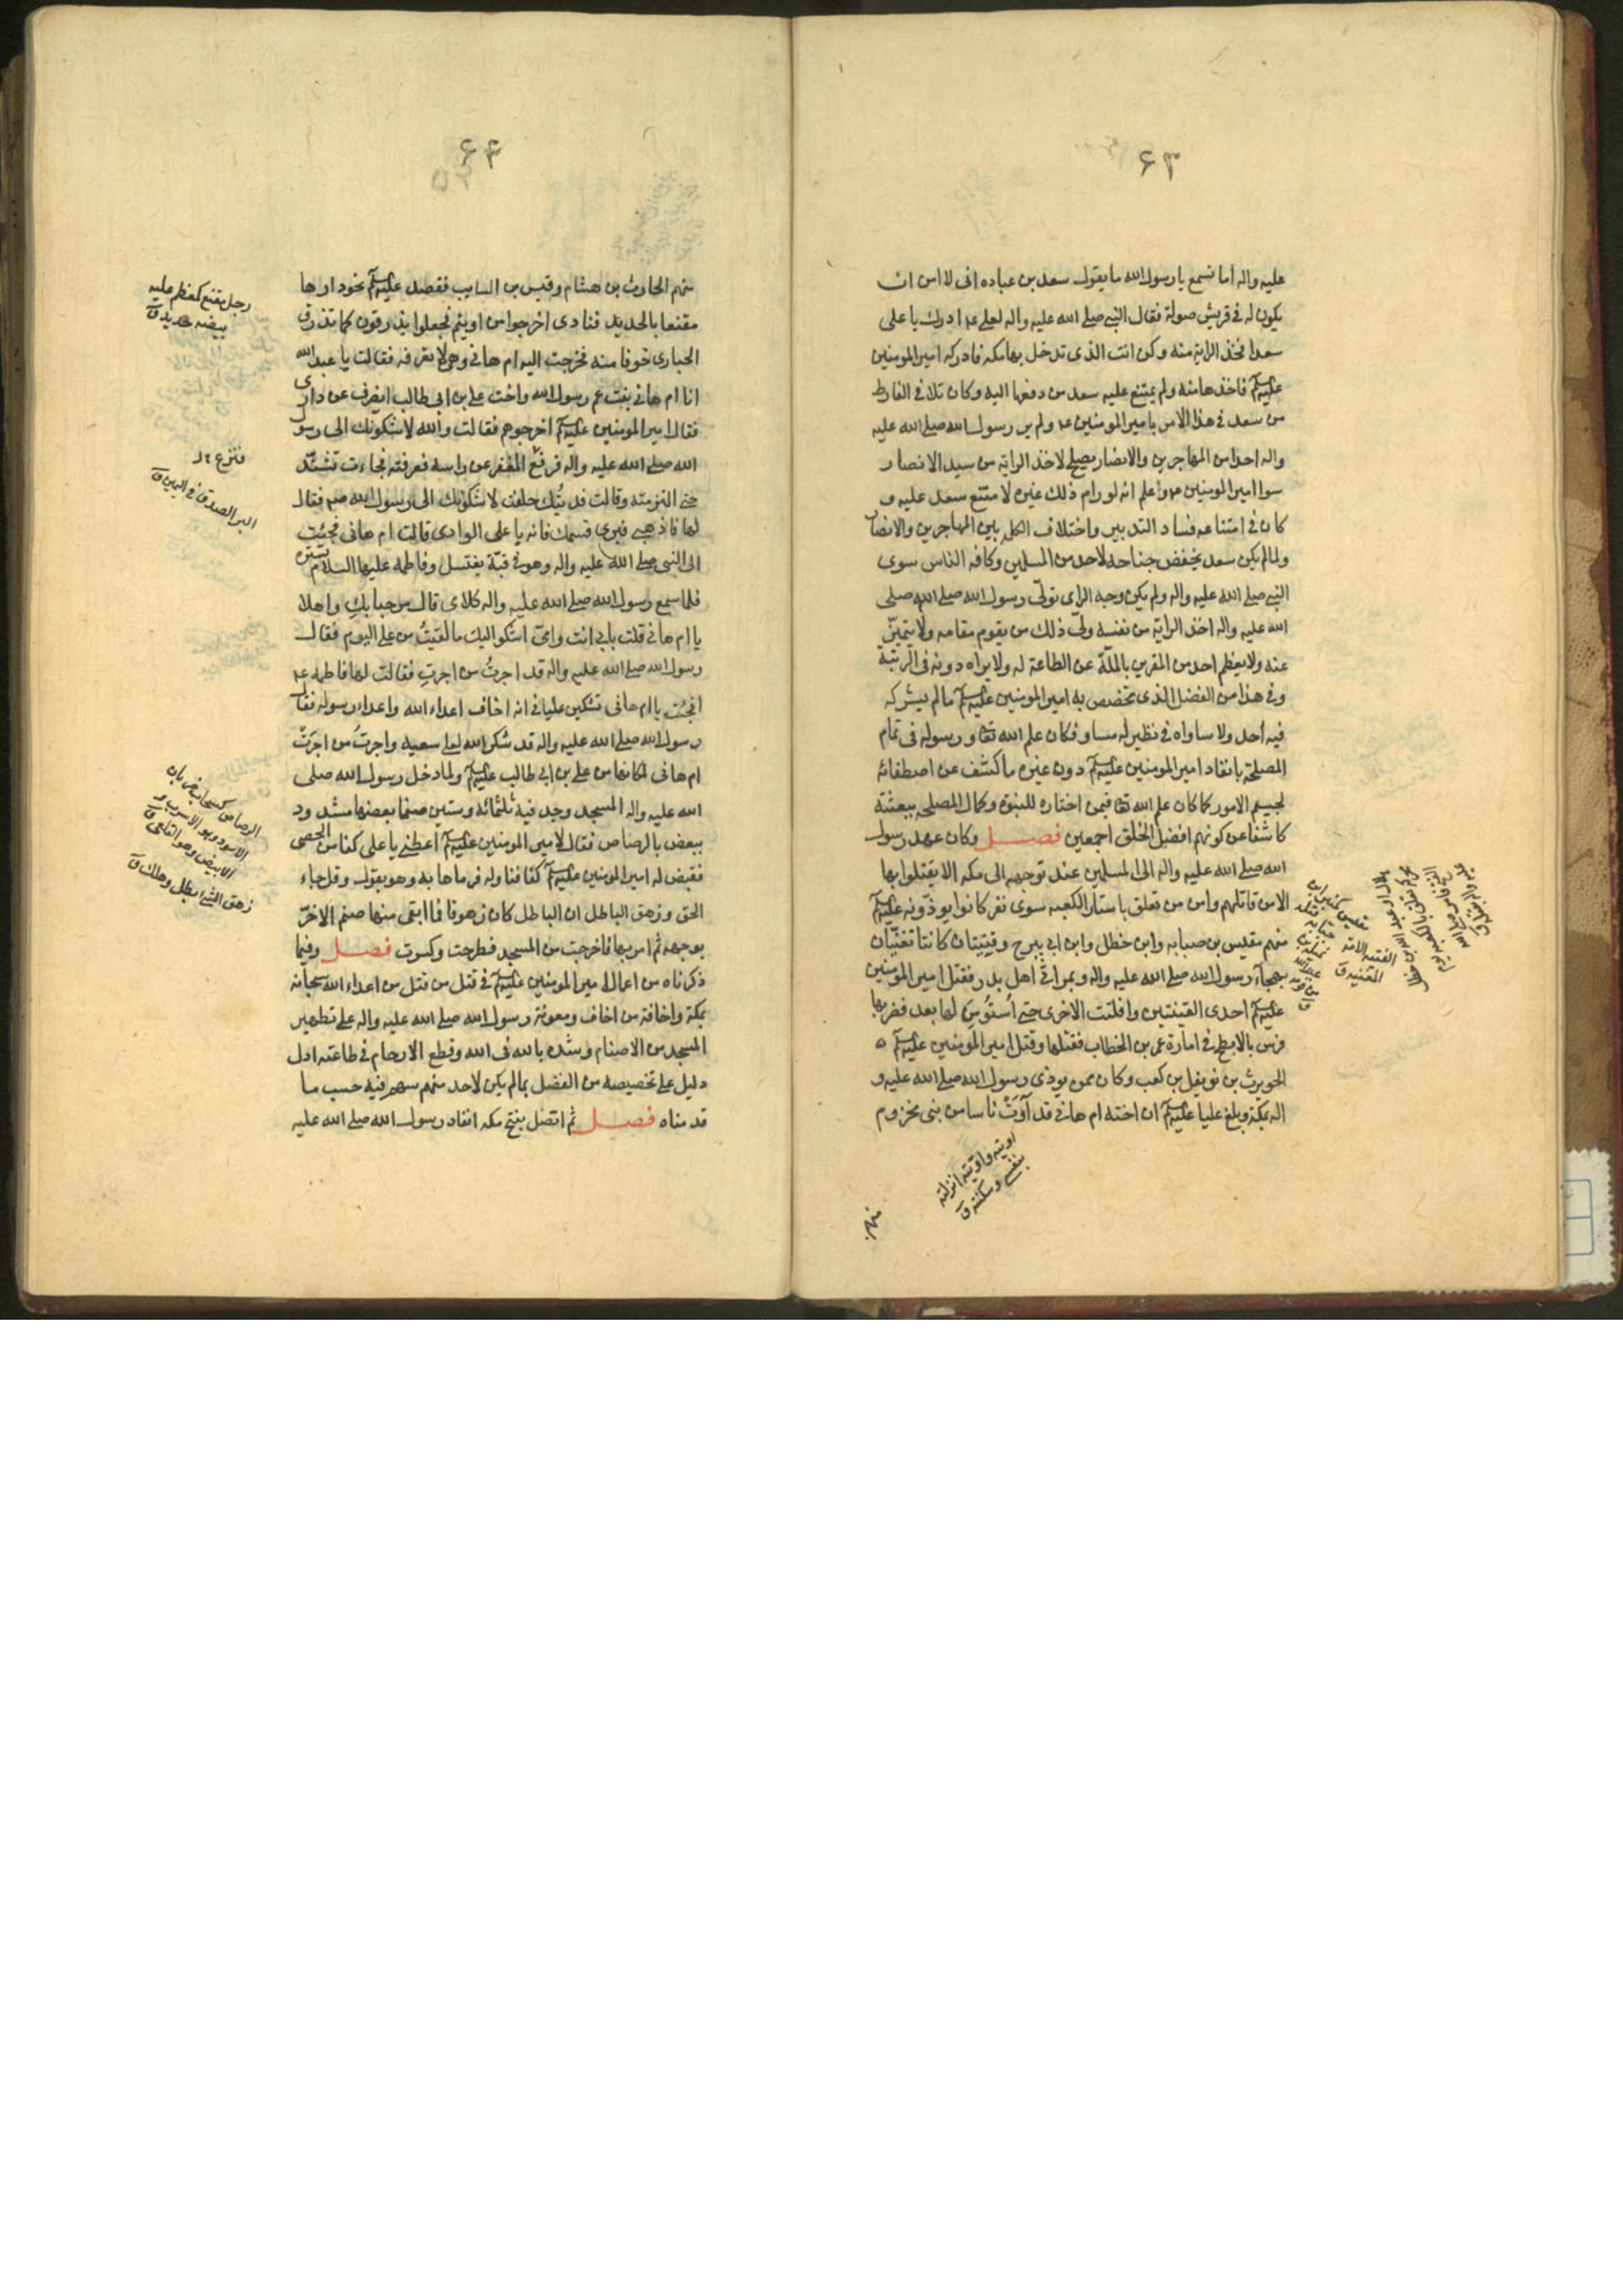 ۶۳
عليه واله اما تسمع يا رسول الله ما يقول سعد بن عباده انى لا امن ان
يكون له فى قريش صولة فقال النبى صلى الله عليه واله لعلى ع ادرك يا على
سعدا فخذ الراية منه وكن انت الذى تدخل بها مكه فادركه امير المومنين
عليه السلم فاخذها منه ولم يمتنع عليه سعد من دفعها اليه وكان تلافى الفارط
من سعد فى هذا الامر بامير المومنين ع ولم ير رسول الله صلى الله عليه
واله احدا من المهاجرين والانصار يصلح لاخذ الراية من سيد الانصار
سوا امير المومنين ع واعلم انه لو رام ذلك غيره لامتنع سعد عليه و
كان فى امتناعه فساد التدبير واختلاف الكلمه بين المهاجرين والانصار
ولما لم يكن سعد يخفض جناحه لاحد من المسلمين وكافه الناس سوى
النبى صلى الله عليه واله ولم يكن وجه الراى تولى رسول الله صلى الله صلى
الله عليه واله اخذ الراية من نفسه ولى ذلك من يقوم مقامه ولا يتميز
عنه ولا يعظم احد من المقرين بالملة عن الطاعة له ولا يراه دونه فى الرتبة
وفى هذا من الفضل الذى تخصص به امير المومنين عليه السلم ما لم يشركه
فيه أحد ولا ساواه فى نظير له مساو فكان علم الله تعا ورسوله فى تمام
المصلحة بانفاد امير المومنين عليه السلم دون غيره ما كشف عن اصطفائه
لجسيم الامور كما كان علم الله تعا فيمن اختاره للنبوة وكمال المصلحه ببعثته
كاشفا عن كونهم افضل الخلق اجمعين فصل وكان عهد رسول
الله صلى الله عليه واله الى المسلمين عند توجهه الى مكه الا يقتلوا بها
الا من قاتلهم وامن من تعلق باستار الكعبه سوى نفر كانوا يوذونه عليه السلم
منهم مقيس بن صبابه وابن خطل وابن ابى سرح وقينتان كانتا تغنيان
بهجاء رسول الله صلى الله عليه واله وبمراثى اهل بدر فقتل امير المومنين
عليه السلم احدى القينتين وافلتت الاخرى حتى أستُومن لها بعد فضربها
فرس بالابطح فى امارة عمر بن الخطاب فقتلها وقتل امير المومنين عليه السلم
الحويرث بن نويفل بن كعب وكان ممن يوذى رسول الله صلى الله عليه و
اله بمكة وبلغ عليا عليه السلم ان اخته ام هانى قد آوَتْ ناسا من بنى مخزوم
اويته واوّيته انزلته
بنفسى وسكنته ق
منهم
القينه الامة
المغنيه ق
۶۴
منهم الحارث بن هشام وقيس بن السايب فقصد عليه السلم نحو دارها
مقنعا بالحديد فنادى اخرجوا من اويتم فجعلوا يذرقون كما تذرق
الحبارى خوفا منه فخرجت اليه ام هانى وهى لا تعرفه فقالت يا عبد الله
انا ام هانى بنت عم رسول الله واخت على بن ابى طالب انصرف عن دارى
فقال امير المومنين عليه السلم اخرجوهم فقالت والله لاشكونك الى رسول
الله صلى الله عليه واله فرفع المغفر عن راسه فعرفته فجاءت تشتد
حتى التزمته وقالت فديتُك حلفت لاشكونك الى رسول الله صم فقال
لها فاذهبى فبرى قسمك فانه يا على الوادى قالت ام هانى فجئت
الى النبى صلى الله عليه واله وهو فى قبّة يغتسل وفاطمه عليها السلام تستره
فلما سمع رسول الله صلى الله عليه واله كلامى قال مرحبا بكِ واهلا
يا ام هانى قلت بابى انت وامى اشكو اليك ما لقيتُ من على اليوم فقال
رسول الله صلى الله عليه واله قد اجرتُ من اجرتِ فقالت لها فاطمه ع
انجئتِ يا ام هانى تشكين عليا فى انه اخاف اعداء الله واعداء رسوله فقال
رسول الله صلى الله عليه واله قد شكر الله لعلى سعيه واجرتُ من اجرَتْ
ام هانى لمكانها من على بن ابى طالب عليه السلم ولما دخل رسول الله صلى
الله عليه واله المسجد وجد فيه ثلثمائه وستين صنما بعضها مشدود
ببعض بالرصاص فقال لامير المومنين عليه السلم اعطنى يا على كفا من الحصى
فقبض له امير المومنين عليه السلم كفا فناوله فرماها به وهو يقول وقل جاء
الحق وزهق الباطل ان الباطل كان زهوقا فما ابقى منها صنم الا خرّ
بوجهه ثم امر بها فاخرجت من المسجد فطرحت وكسرت فصل وفيما
ذكرناه من اعمال امير المومنين عليه السلم فى قتل من قتل من اعداء الله سبحانه
بمكة واخافة من اخاف ومعونة رسول الله صلى الله عليه واله على تطهير
المسجد من الاصنام وشده بالله فى الله وقطع الارحام فى طاعته ادل
دليل على تخصيصه من الفضل بما لم يكن لاحد منهم سهم فيه حسب ما
قدمناه فصل ثم اتصل بفتح مكه انفاد رسول الله صلى الله عليه
رجل مقنع كمعظم عليه
بيضه حديد ق
فنزع ع ل
البر الصدق فى اليمين ق
الرصاص كسحاب ضربان
الاسود وهو الاسرب و
الابيض وهو القلعى ق
زهق الشئ بطل وهلك ق